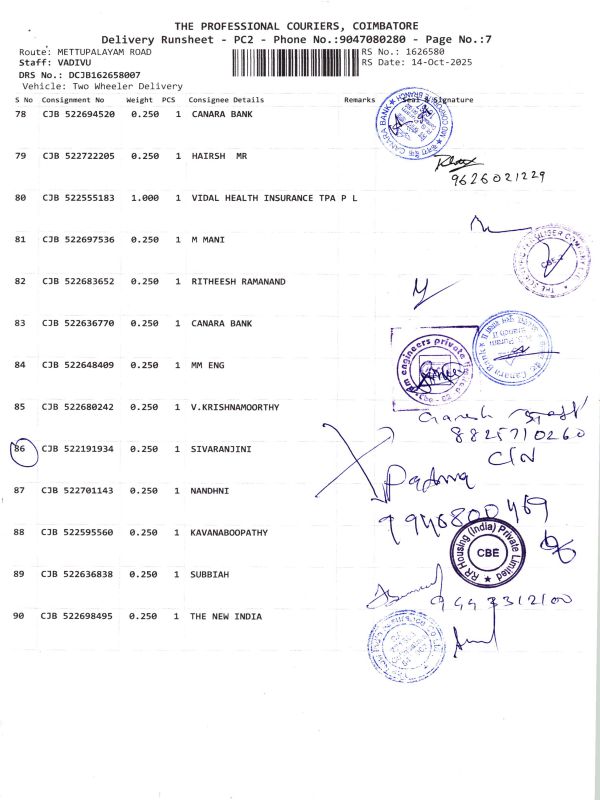 THE PROFESSIONAL COURIERS, COIMBATORE
Delivery Runsheet - PC2 - Phone No.:9047080280 - Page No.:7
Route: METTUPALAYAM ROAD RS No.: 1626580
Staff: VADIVU RS Date: 14-Oct-2025
DRS No.: DCJB162658007
Vehicle: Two Wheeler Delivery
S No Consignment No Weight PCS Consignee Details Remarks Seal & Signature
78 CJB 522694520 0.250 1 CANARA BANK
CANARA BANK
79 CJB 522722205 0.250 1 HAIRSH MR
9626021229
80 CJB 522555183 1.000 1 VIDAL HEALTH INSURANCE TPA P L
81 CJB 522697536 0.250 1 M MANI
CBE
82 CJB 522683652 0.250 1 RITHEESH RAMANAND
83 CJB 522636770 0.250 1 CANARA BANK
Canara Bank
84 CJB 522648409 0.250 1 MM ENG
engineers private
85 CJB 522680242 0.250 1 V.KRISHNAMOORTHY
Ganesh
8825710260
C/N
86 CJB 522191934 0.250 1 SIVARANJINI
Padma
87 CJB 522701143 0.250 1 NANDHNI
9940800469
88 CJB 522595560 0.250 1 KAVANABOOPATHY
RR Housing (India) Private Limited
CBE
89 CJB 522636838 0.250 1 SUBBIAH
9443312100
90 CJB 522698495 0.250 1 THE NEW INDIA